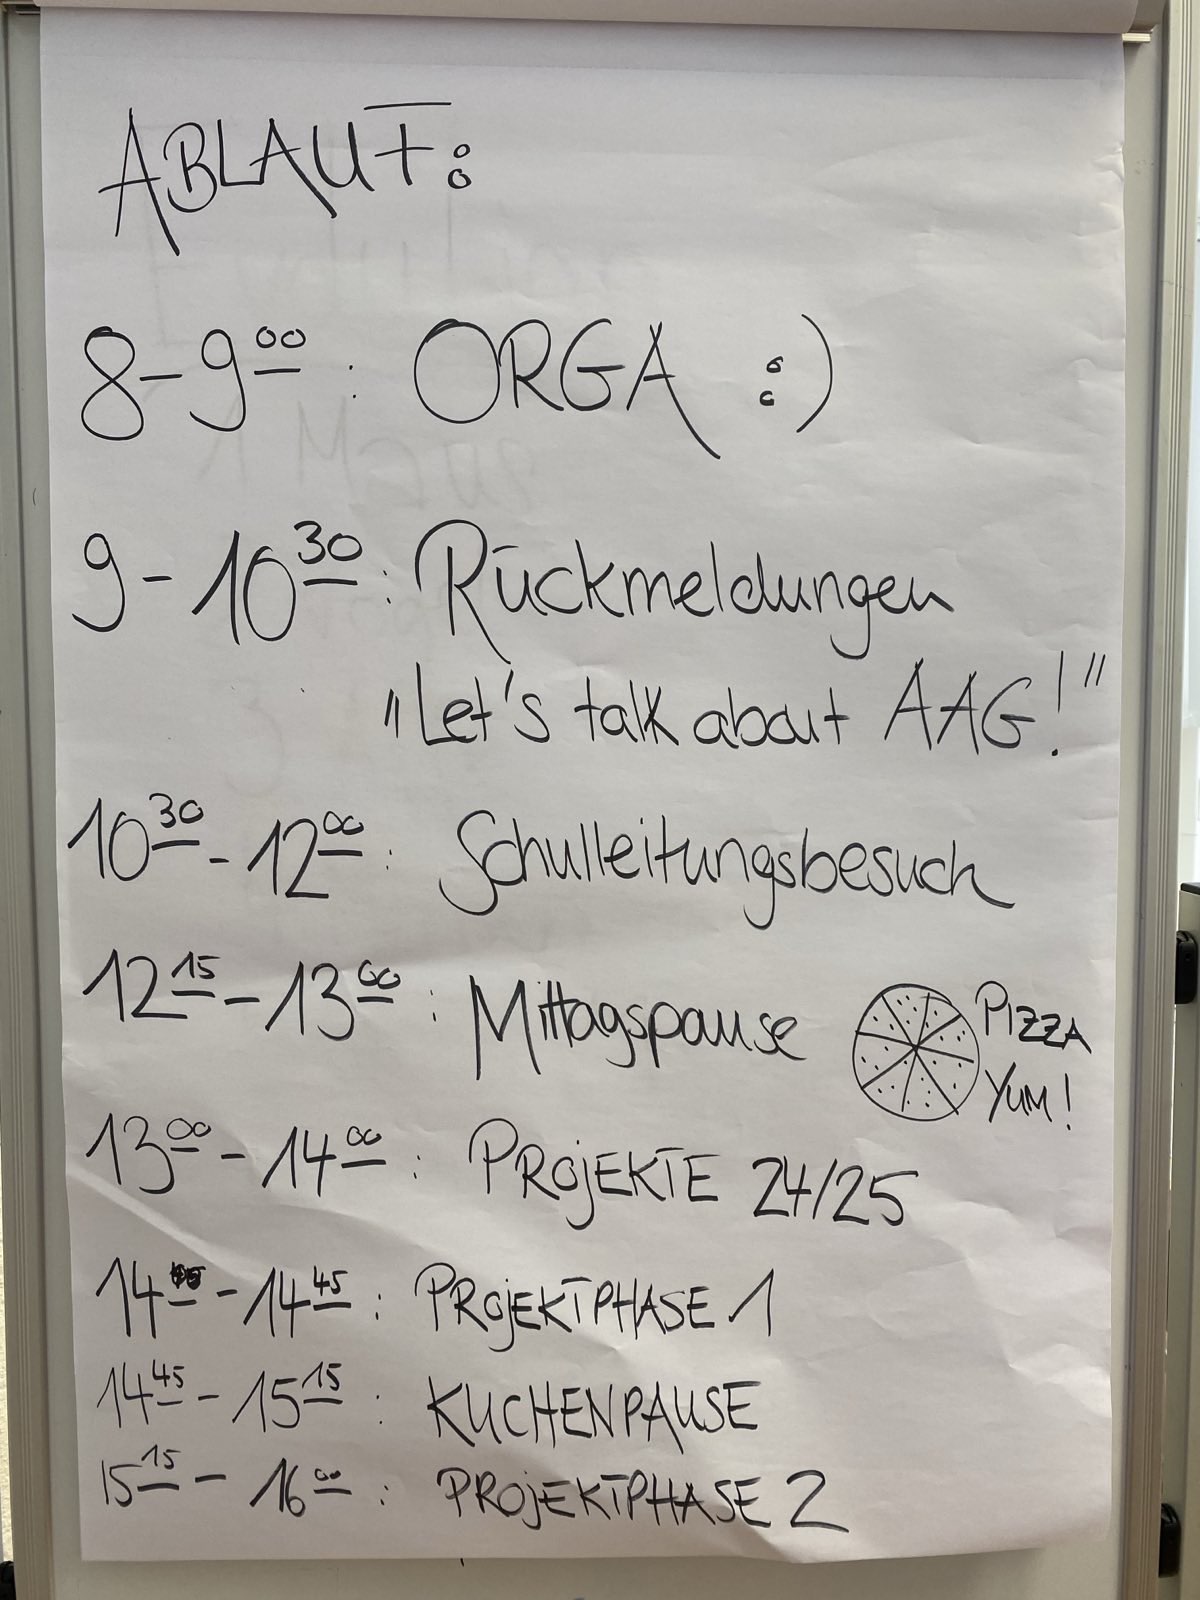 ABLAUF:
8-9⁰⁰ : ORGA :)
9-10³⁰ : Rückmeldungen
„Let's talk about AAG!"
10³⁰ - 12⁰⁰ : Schulleitungsbesuch
12¹⁵ - 13⁰⁰ : Mittagspause PIZZA
YUM!
13⁰⁰ - 14⁰⁰ : PROJEKTE 24/25
14 - 14⁴⁵ : PROJEKTPHASE 1
14⁴⁵ - 15¹⁵ : KUCHENPAUSE
15¹⁵ - 16⁰⁰ : PROJEKTPHASE 2